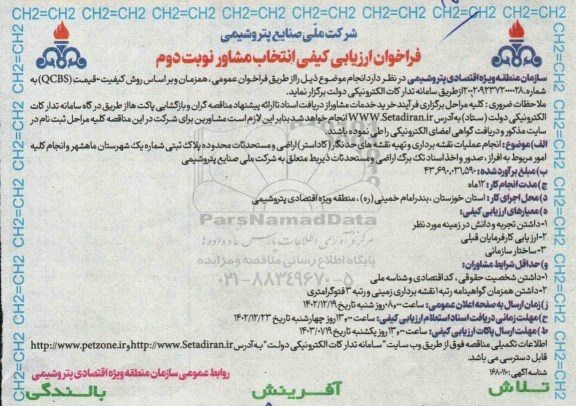 CH2=CH2 CH2=CH2 CH2=CH2 CH2=CH2 CH2=CH2 CH2=CH2 CH2=CH2
شرکت ملّی صنایع پتروشیمی
فراخوان ارزیابی کیفی انتخاب مشاور نوبت دوم
سازمان منطقه ویژه اقتصادی پتروشیمی در نظر دارد انجام موضوع ذیل را از طریق فراخوان عمومی، همزمان و بر اساس روش کیفیت-قیمت (QCBS) به
شماره ۲۰۰۲۰۹۲۳۷۲۰۰۰۰۲۸ از طریق سامانه تدارکات الکترونیکی دولت برگزار نماید.
ملاحظات ضروری: کلیه مراحل برگزاری فرآیند خرید خدمات مشاور از دریافت اسناد تا ارائه پیشنهاد مناقصه گران و بازگشایی پاکت ها از طریق درگاه سامانه تدارکات
الکترونیکی دولت (ستاد) به آدرس WWW.Setadiran.ir انجام خواهد شد بنابر این لازم است مشاورین برای شرکت در این مناقصه کلیه مراحل ثبت نام در
سایت مذکور و دریافت گواهی امضای الکترونیکی را طی نموده باشند.
الف) موضوع: انجام عملیات نقشه برداری و تهیه نقشه های حدنگار (کاداستر) اراضی و مستحدثات محدوده پلاک ثبتی شماره یک شهرستان ماهشهر و انجام کلیه
امور مربوط به افراز، صدور و اخذ اسناد تک برگ اراضی و مستحدثات ذیربط متعلق به شرکت ملی صنایع پتروشیمی
ب) مبلغ برآورد شده: ۴۳,۶۹۰,۰۳۱,۵۹۰
ج) مدت انجام کار: ۱۲ماه
د) محل اجرای کار: استان خوزستان، بندرامام خمینی (ره)، منطقه ویژه اقتصادی پتروشیمی
ه) معیارهای ارزیابی کیفی:
۱-داشتن تجربه و دانش در زمینه مورد نظر
۲-ارزیابی کارفرمایان قبلی
۳-ساختار سازمانی
و) حداقل شرایط مشاوران:
۱-داشتن شخصیت حقوقی، کد اقتصادی و شناسه ملی
۲-داشتن همزمان گواهینامه رتبه ۱ نقشه برداری زمینی و رتبه ۳ فتوگرامتری
ز) زمان ارسال به صفحه اعلان عمومی: ساعت ۰۸:۰۰ روز شنبه تاریخ ۱۴۰۲/۱۲/۱۹
ح) مهلت زمانی دریافت اسناد استعلام ارزیابی کیفی: ساعت ۱۳:۰۰ روز چهارشنبه تاریخ ۱۴۰۲/۱۲/۲۳
ط) مهلت ارسال پاکات ارزیابی کیفی: ساعت ۱۳:۰۰ روز یکشنبه تاریخ ۱۴۰۳/۰۱/۱۹
اطلاعات تکمیلی مناقصه فوق از طریق وب سایت "سامانه تدارکات الکترونیکی دولت" به آدرس http://www.Setadiran.ir و http://www.petzone.ir
قابل دسترسی می باشد.
شناسه آگهی: ۱۶۸۰۱۱۰
روابط عمومی سازمان منطقه ویژه اقتصادی پتروشیمی
تلاش آفرینش بالندگی
ParsNamadData
مرکز فرآوری اطلاعات پارس نماد داده ها
پایگاه اطلاع رسانی مناقصه و مزایده
۰۲۱-۸۸۳۴۹۶۷۰-۵